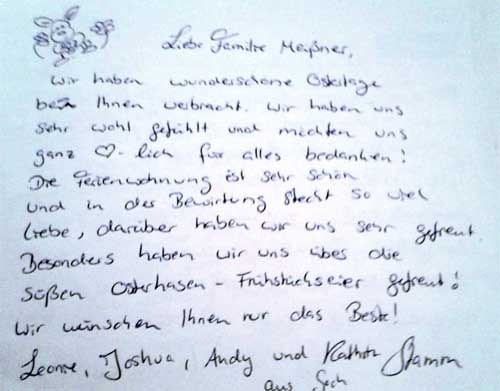 Liebe Familie Meißner,
wir haben wunderschöne Ostertage
bei Ihnen verbracht. Wir haben uns
sehr wohl gefühlt und möchten uns
ganz ♡-lich für alles bedanken!
Die Ferienwohnung ist sehr schön
und in der Bewirtung steckt so viel
Liebe, darüber haben wir uns sehr gefreut.
Besonders haben wir uns über die
süßen Osterhasen-Frühstückseier gefreut!
Wir wünschen Ihnen nur das Beste!
Leonie, Joshua, Andy und Kathrin Stamm
aus